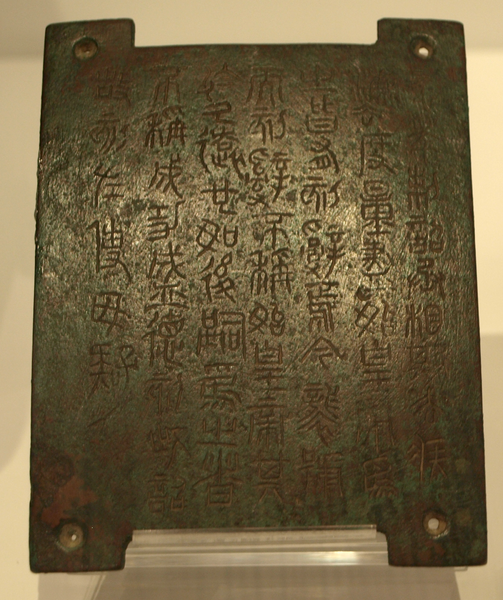 制詔丞相斯去疾
灋度量盡始皇帝為
之皆有刻辭焉今襲號
而刻辭不稱始皇帝其
於久遠也如後嗣為之者
不稱成功盛德刻此詔
故刻左使毋疑